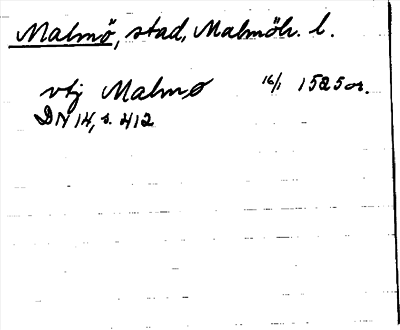 Malmö, stad, Malmöh. l.
vtj Malmø 16/1 1525 or.
DN 14, s. 412